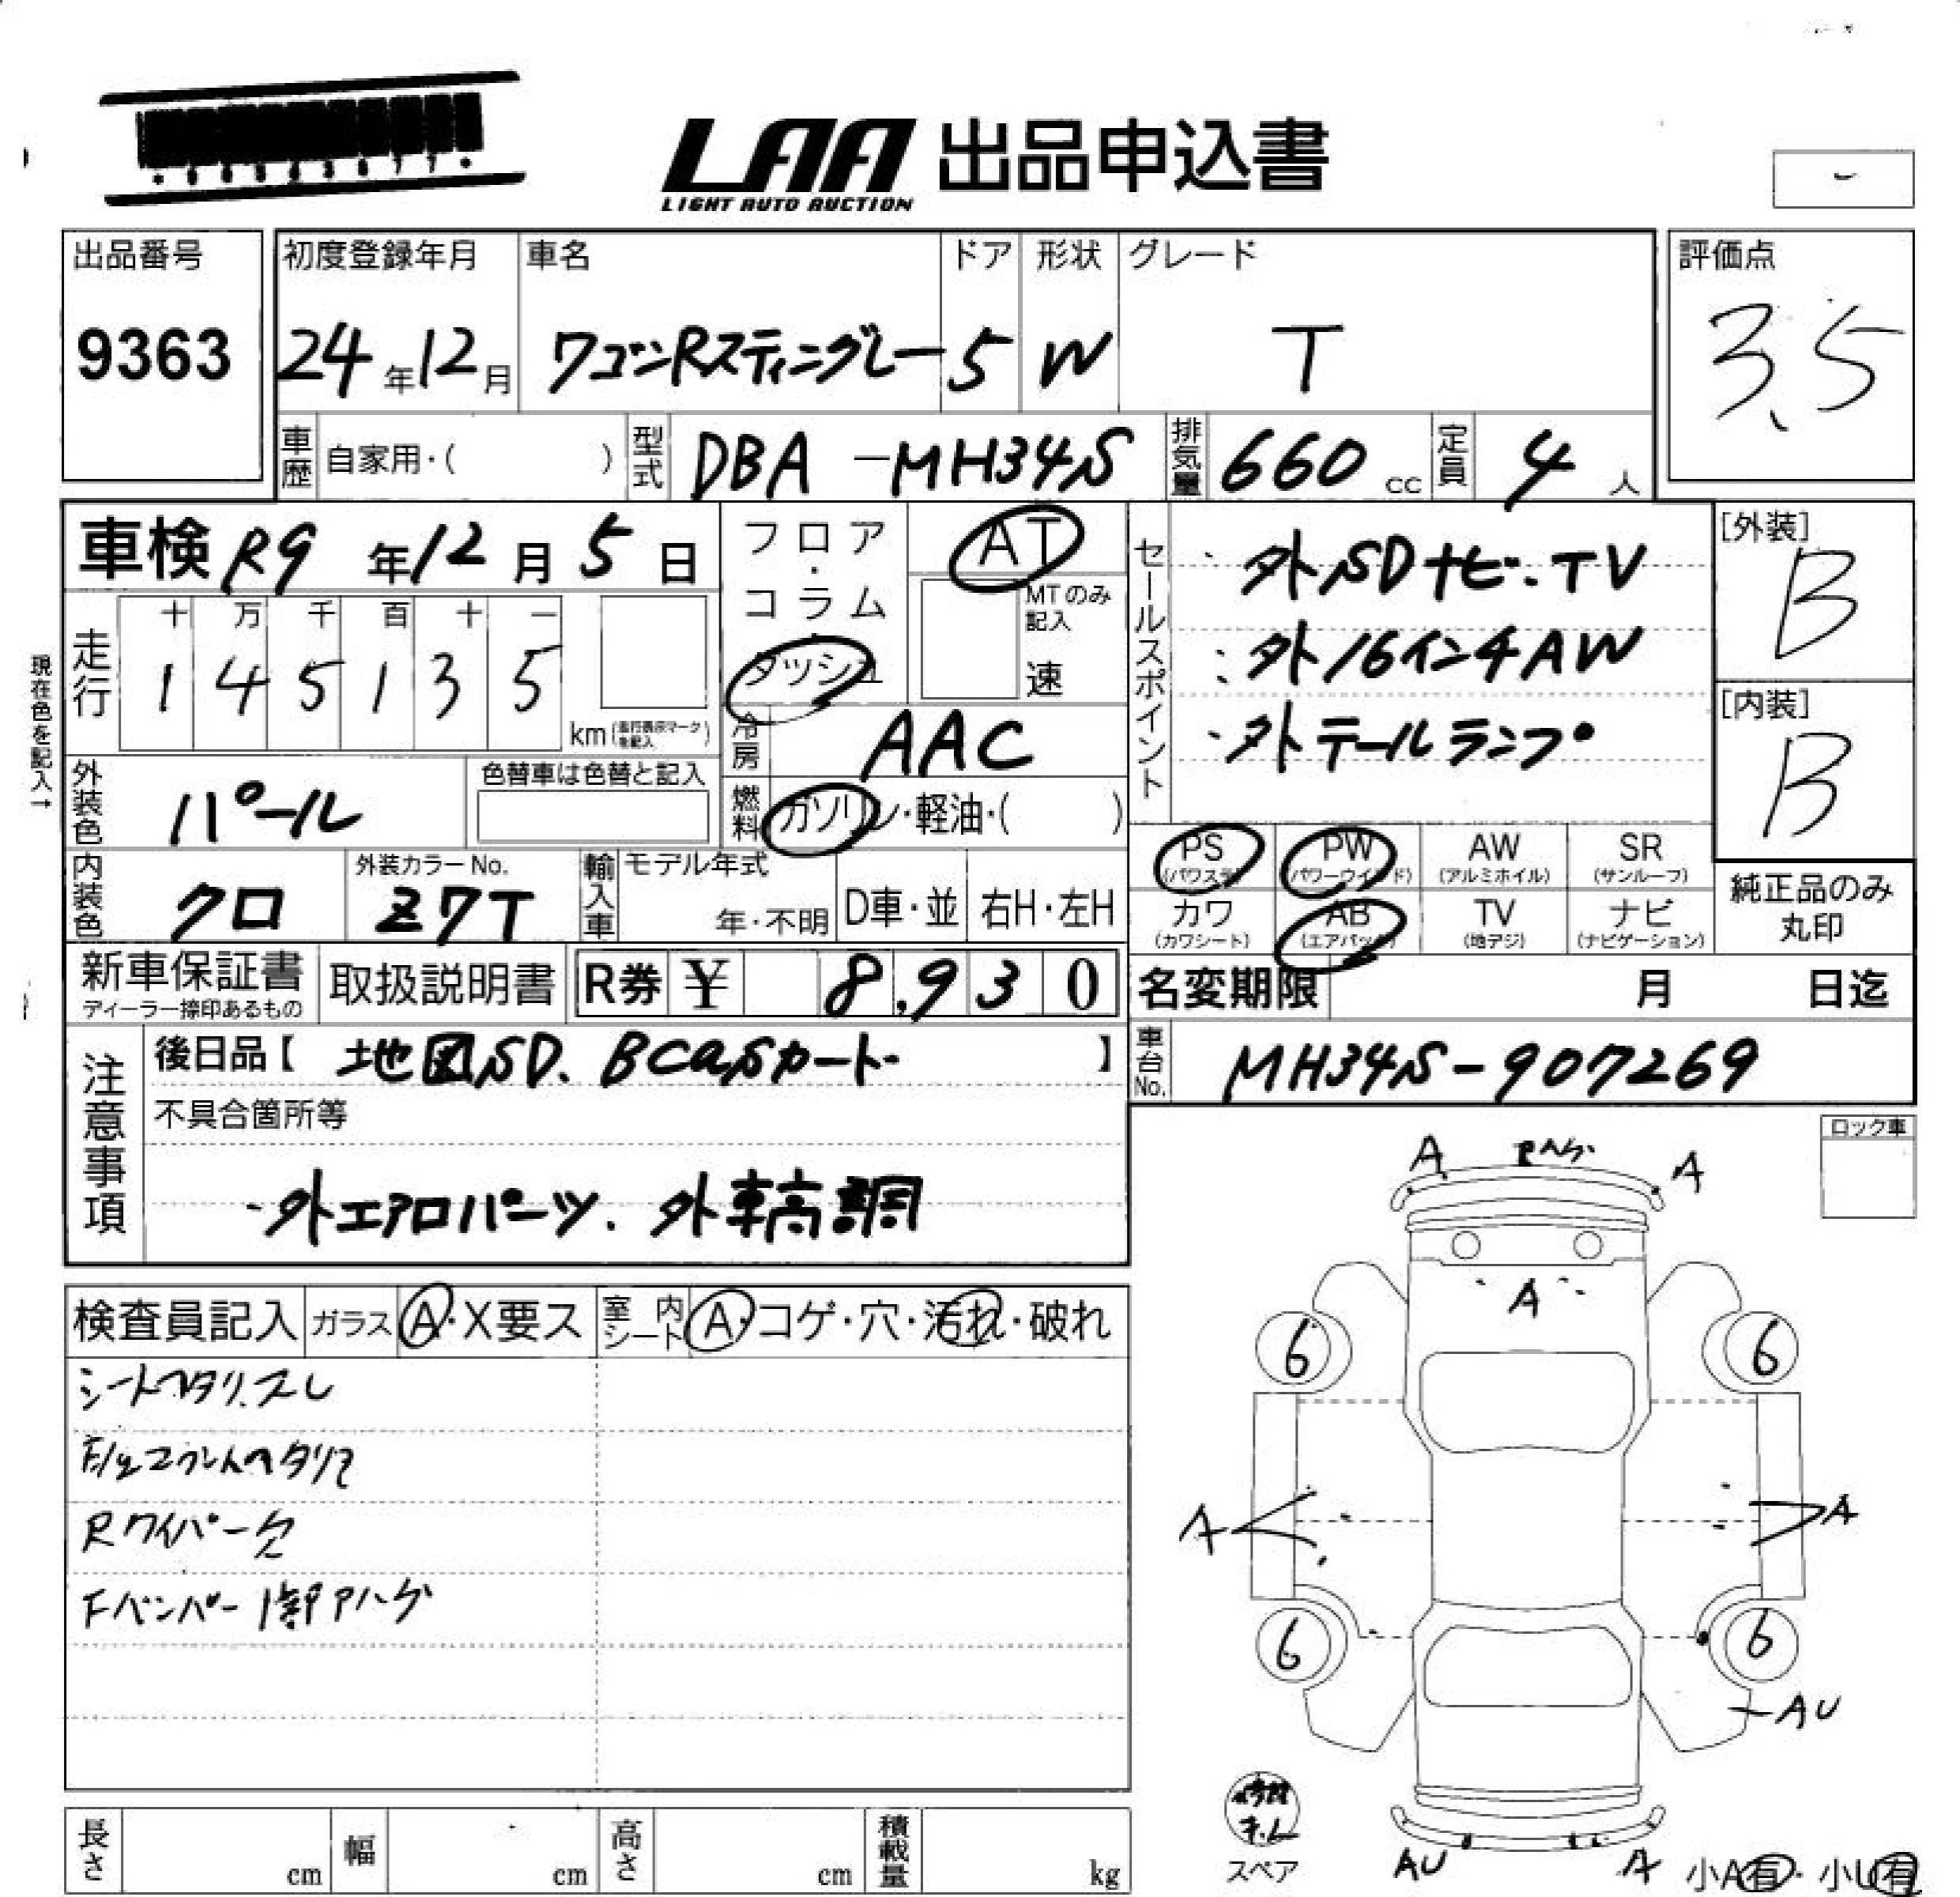 LAA 出品申込書
LIGHT AUTO AUCTION
出品番号
9363
初度登録年月
24年12月
車名
ワゴンRスティングレー
ドア
5
形状
W
グレード
T
評価点
3.5
車歴 自家用・( )
型式 DBA-MH34S
排気量 660 cc
定員 4 人
車検 R9 年 12 月 5 日
フロア・コラム・ダッシュ
AT
MTのみ記入
速
セールスポイント
・外SDナビ.TV
・外16インチAW
・外テールランプ
[外装]
B
[内装]
B
現在色を記入→
走行
十 万 千 百 十 一
1 4 5 1 3 5
km (走行表示マークを記入)
冷房 AAC
燃料 ガソリン・軽油・( )
外装色 パール
色替車は色替と記入
内装色 クロ
外装カラーNo.
Z7T
輸入車
モデル年式
年・不明
D車・並
右H・左H
PS (パワステ)
PW (パワーウインド)
AW (アルミホイル)
SR (サンルーフ)
カワ (カワシート)
AB (エアバック)
TV (地デジ)
ナビ (ナビゲーション)
純正品のみ丸印
新車保証書
ディーラー捺印あるもの
取扱説明書
R券 ¥ 8,930
名変期限 月 日迄
注意事項
後日品【 地図SD. BCasカード 】
車台No. MH34S-907269
不具合箇所等
・外エアロパーツ. 外車高調
ロック車
検査員記入
ガラス A・X要ス
室内シート A・コゲ・穴・汚れ・破れ
シートヘタリ.スレ
Rワイパー欠
Fバンパー1部Pハゲ
A Pハゲ A
A
6 6
A A
6 6
AU
スペア
AU A
小A有・小U有
長さ cm
幅 cm
高さ cm
積載量 kg